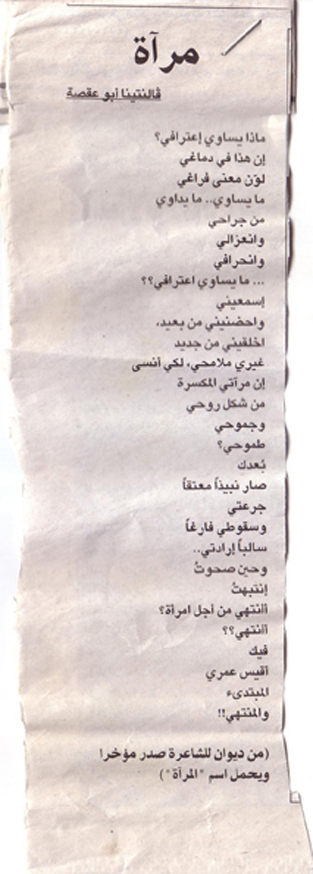 مرآة
ڤالنتينا أبو عقصة
ماذا يساوي إعترافي؟
إن هذا في دماغي
لوّن معنى فراغي
ما يساوي.. ما يداوي
من جراحي
وانعزالي
وانحرافي
... ما يساوي اعترافي؟؟
إسمعيني
واحضنيني من بعيد،
اخلقيني من جديد
غيري ملامحي، لكي أنسى
إن مرآتي المكسرة
من شكل روحي
وجموحي
طموحي؟
بُعدك
صار نبيذاً معتقاً
جرعتي
وسقوطي فارغاً
سالباً إرادتي..
وحين صحوتُ
إنتبهتُ
أأنتهي من أجل امرأة؟
أأنتهي؟؟
فيك
أقيس عمري
المبتدىء
والمنتهي!!
(من ديوان للشاعرة صدر مؤخرا
ويحمل اسم "المرآة")